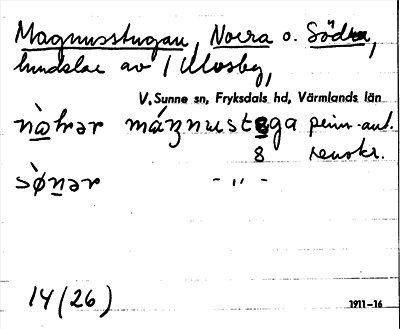 Magnusstugan, Norra o. Södra,
hundelar av 1 Ulvsby,
V. Sunne sn, Fryksdals hd, Värmlands län
nòhrər mánnustsga prim. ant.
8 renskr.
sø̀nər - " -
14 (26)
1911-16